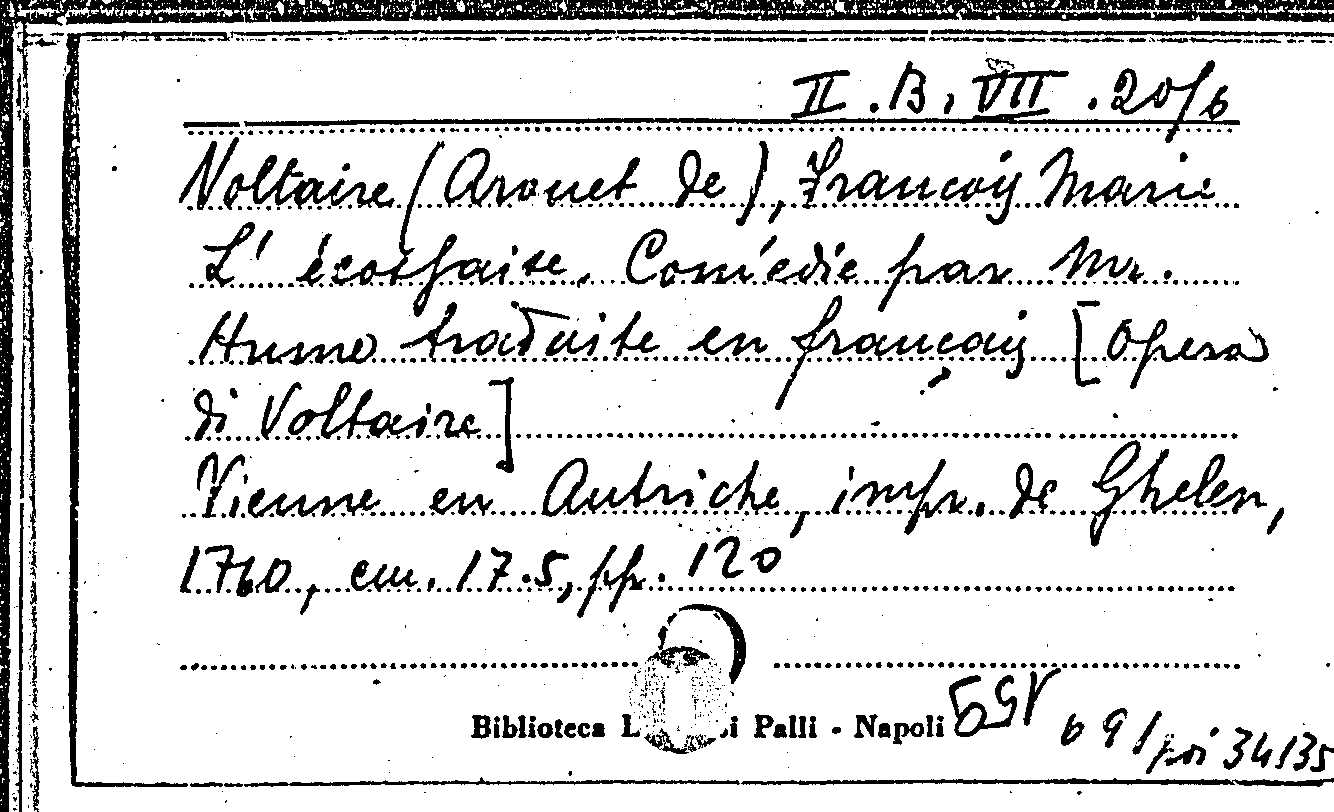 II.B.VII.20/6
Voltaire (Arouet de), François Marie
L'écossaise. Comédie par Mr.
Hume traduite en français [Opera
di Voltaire]
Vienne en Autriche, impr. de Ghelen,
1760, cm. 17.5, pp. 120
Biblioteca L i Palli - Napoli
691/ 34135